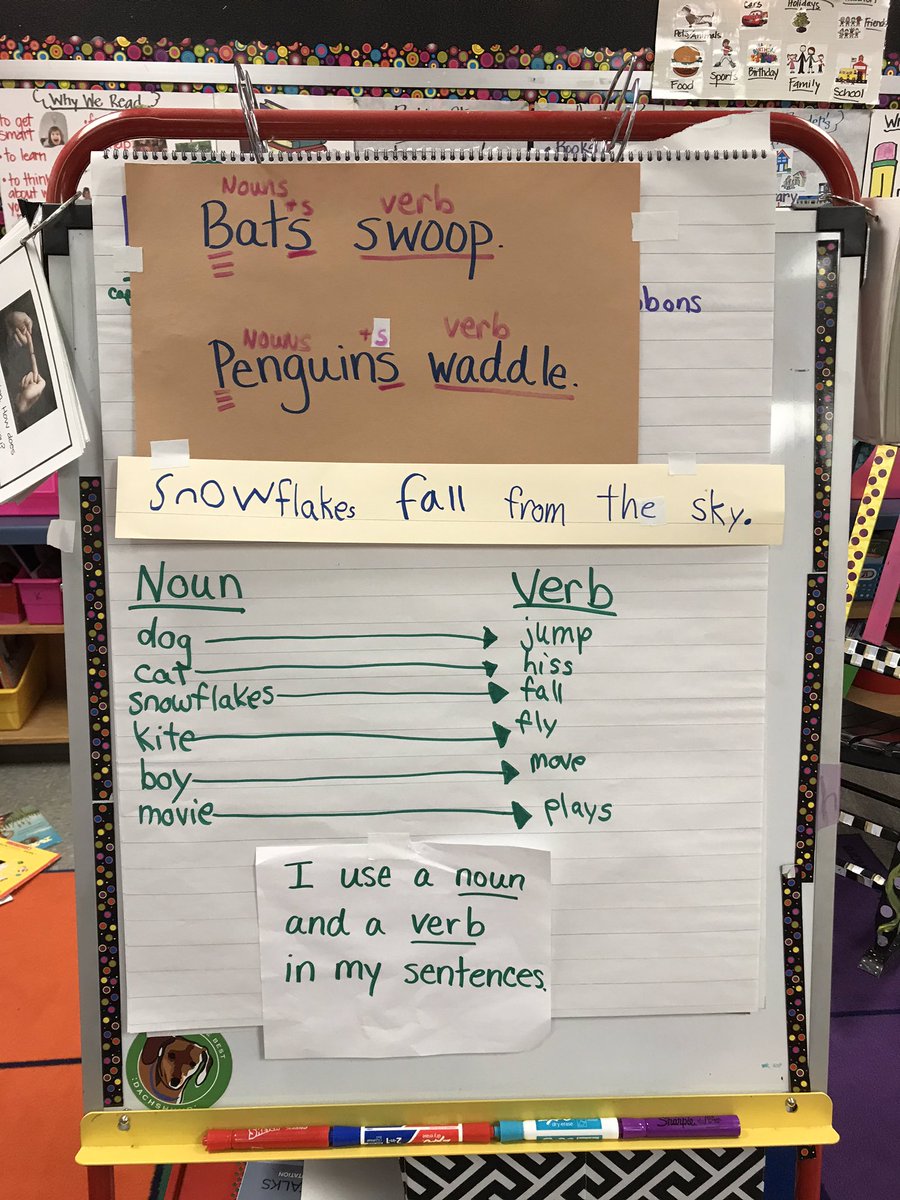 Holidays
Cars
Pets/Animals
Friends
Food
Sports
Birthday
Family
School
Why We Read
to get
smart
• to learn
• to think
about
Nouns +s verb
Bats swoop.
Nouns +s verb
Penguins waddle.
cap
bons
Snowflakes fall from the sky.
Noun Verb
dog jump
cat hiss
snowflakes fall
kite fly
boy move
movie plays
I use a noun
and a verb
in my sentences.
BEST
DACHSHU
2 in 1
dry erase
Sharpie
ALKS